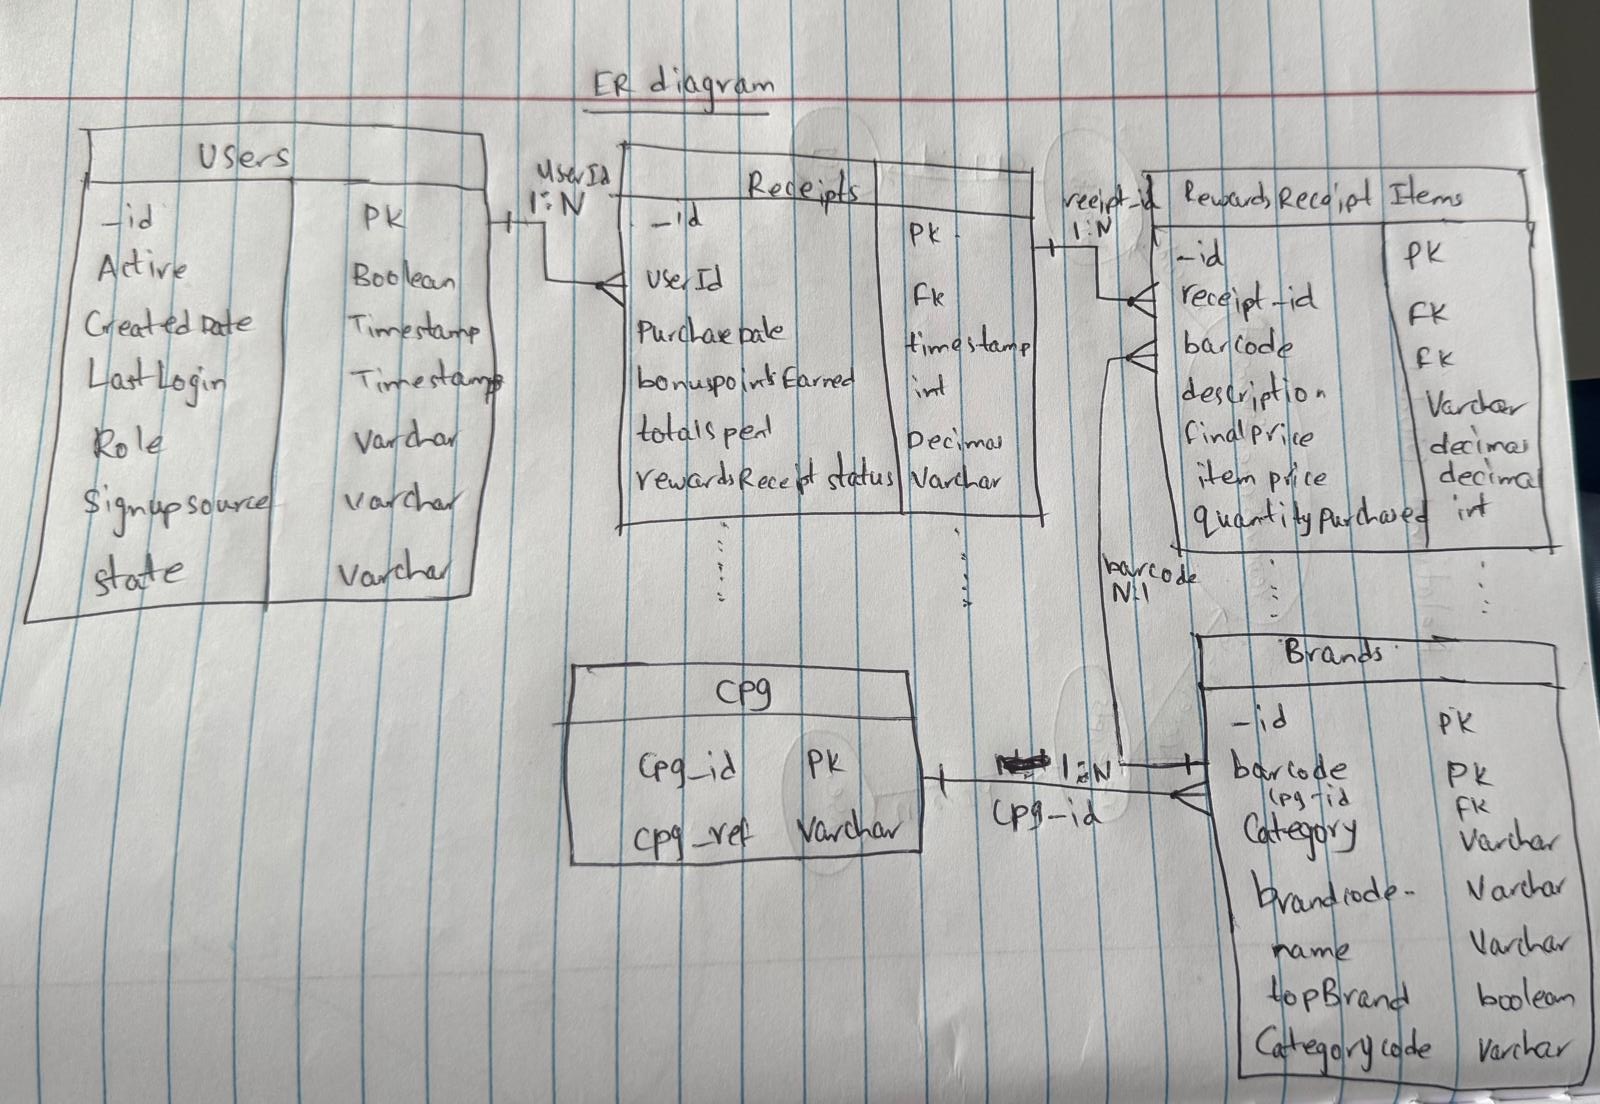 ER diagram
Users
_id PK
Active Boolean
Created Date Timestamp
Last Login Timestamp
Role Varchar
Signup source Varchar
state Varchar
UserId
1:N
Receipts
_id PK
UserId FK
Purchase Date timestamp
bonuspoints Earned int
totalspent Decimal
rewardsReceipt status Varchar
reeipt_id
1:N
RewardsReceipt Items
_id PK
receipt_id FK
barcode FK
description Varchar
finalprice decimal
item price decimal
quantitypurchased int
barcode
N:1
Cpg
Cpg_id PK
Cpg_ref Varchar
1:N
Cpg_id
Brands
_id PK
barcode PK
Cpg_id FK
Category Varchar
brandcode Varchar
name Varchar
topBrand boolean
Categorycode Varchar